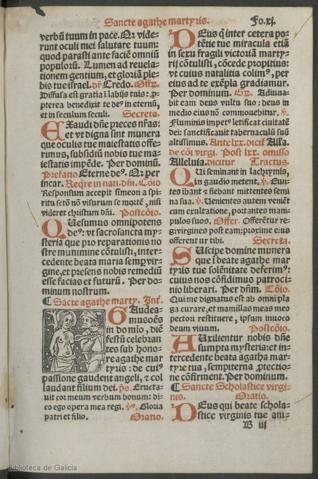 Sancte agathe martyris. Fo.xj.
verbū tuum in pace. Q; vide-
runt oculi mei salutare tuum:
quod parasti ante faciē omniū
populorū. Lumen ad reuela-
tionem gentium, et gloriā ple-
bis tue israel. Credo. Offer.
Diffusa est gratia ī labijs tuis: pro-
pterea benedixit te de' in eternū,
et in seculum seculi. Secreta.
Exaudi dn̄e preces nr̄as:
et vt digna sint munera
que oculis tue maiestatis offe-
rimus, subsidiū nobis tue ma-
iestatis impēde. Per dominū.
Prefatio Eterne de'. Q; per in-
car. Require in nati. dn̄i. Cōio
Responsum accepit simeon a spi-
ritu sctō nō visurum se mortē, nisi
videret christum dn̄i. Postcōio.
Quesumus omnipotens
de': vt sacrosancta my-
steria que pro reparationis no-
stre munimine cōtulisti, inter-
cedente beata maria semp vir-
gine, et presens nobis remediū
esse facias et futurū. Per do-
minum nostrum.
Sācte agathe marty. Int.
Gaudea-
mus oēs
in dn̄io, diē
festū celebran
tes sub hono-
re agathe mar-
tyris: de cui'
passione gaudent angeli, et col
laudant filium dei. Eructa-
uit cor meum verbum bonum: di-
co ego opera mea regi. Gloria
patri et filio. Oratio.
Deus q̄ inter cetera po-
tētie tue miracula etiā
in sexu fragili victoriā marty-
rij cōtulisti, cōcede propitius:
vt cuius natalitia colim', per
eius ad te exēpla gradiamur.
Per dominum. Adiuua-
bit eam deus vultu suo: deus in
medio eius nō commouebitur.
Fluminis impet' letificat ciuitatē
dei: sanctificauit tabernaculū suū
altissimus. Alla.
Post lxx. omisso
Alleluia. dicitur Tractus.
Qui seminant in lachrymis,
in gaudio metent. Eun-
tes ibant et flebant mittentes semi
na sua. Uenientes autem venient
cum exultatione, portantes mani-
pulos suos. Offer. Offerentur re-
gi virgines post eam: proxime eius
offerent ur tibi. Secreta.
Suscipe domine munera
que ī beate agathe mar
tyris tue solēnitate deferim':
cuius nos cōfidimus patroci-
nio liberari. Per dn̄m. Cōio.
Qui me dignatus est ab omni pla
ga curare, et mamillas meas meo
pectori restituere, ipsum inuoco
deum viuum. Postcōio.
Auxilientur nobis dn̄e
sumpta mysteria: et in-
tercedente beata agatha mar-
tyre tua, sempiterna ptectio-
ne cōfirment. Per dominum.
Sancte Scholastice virgi-
nis. Oratio.
Deus qui beate schola-
stice virginis tue ani-
B iij
Biblioteca de Galicia